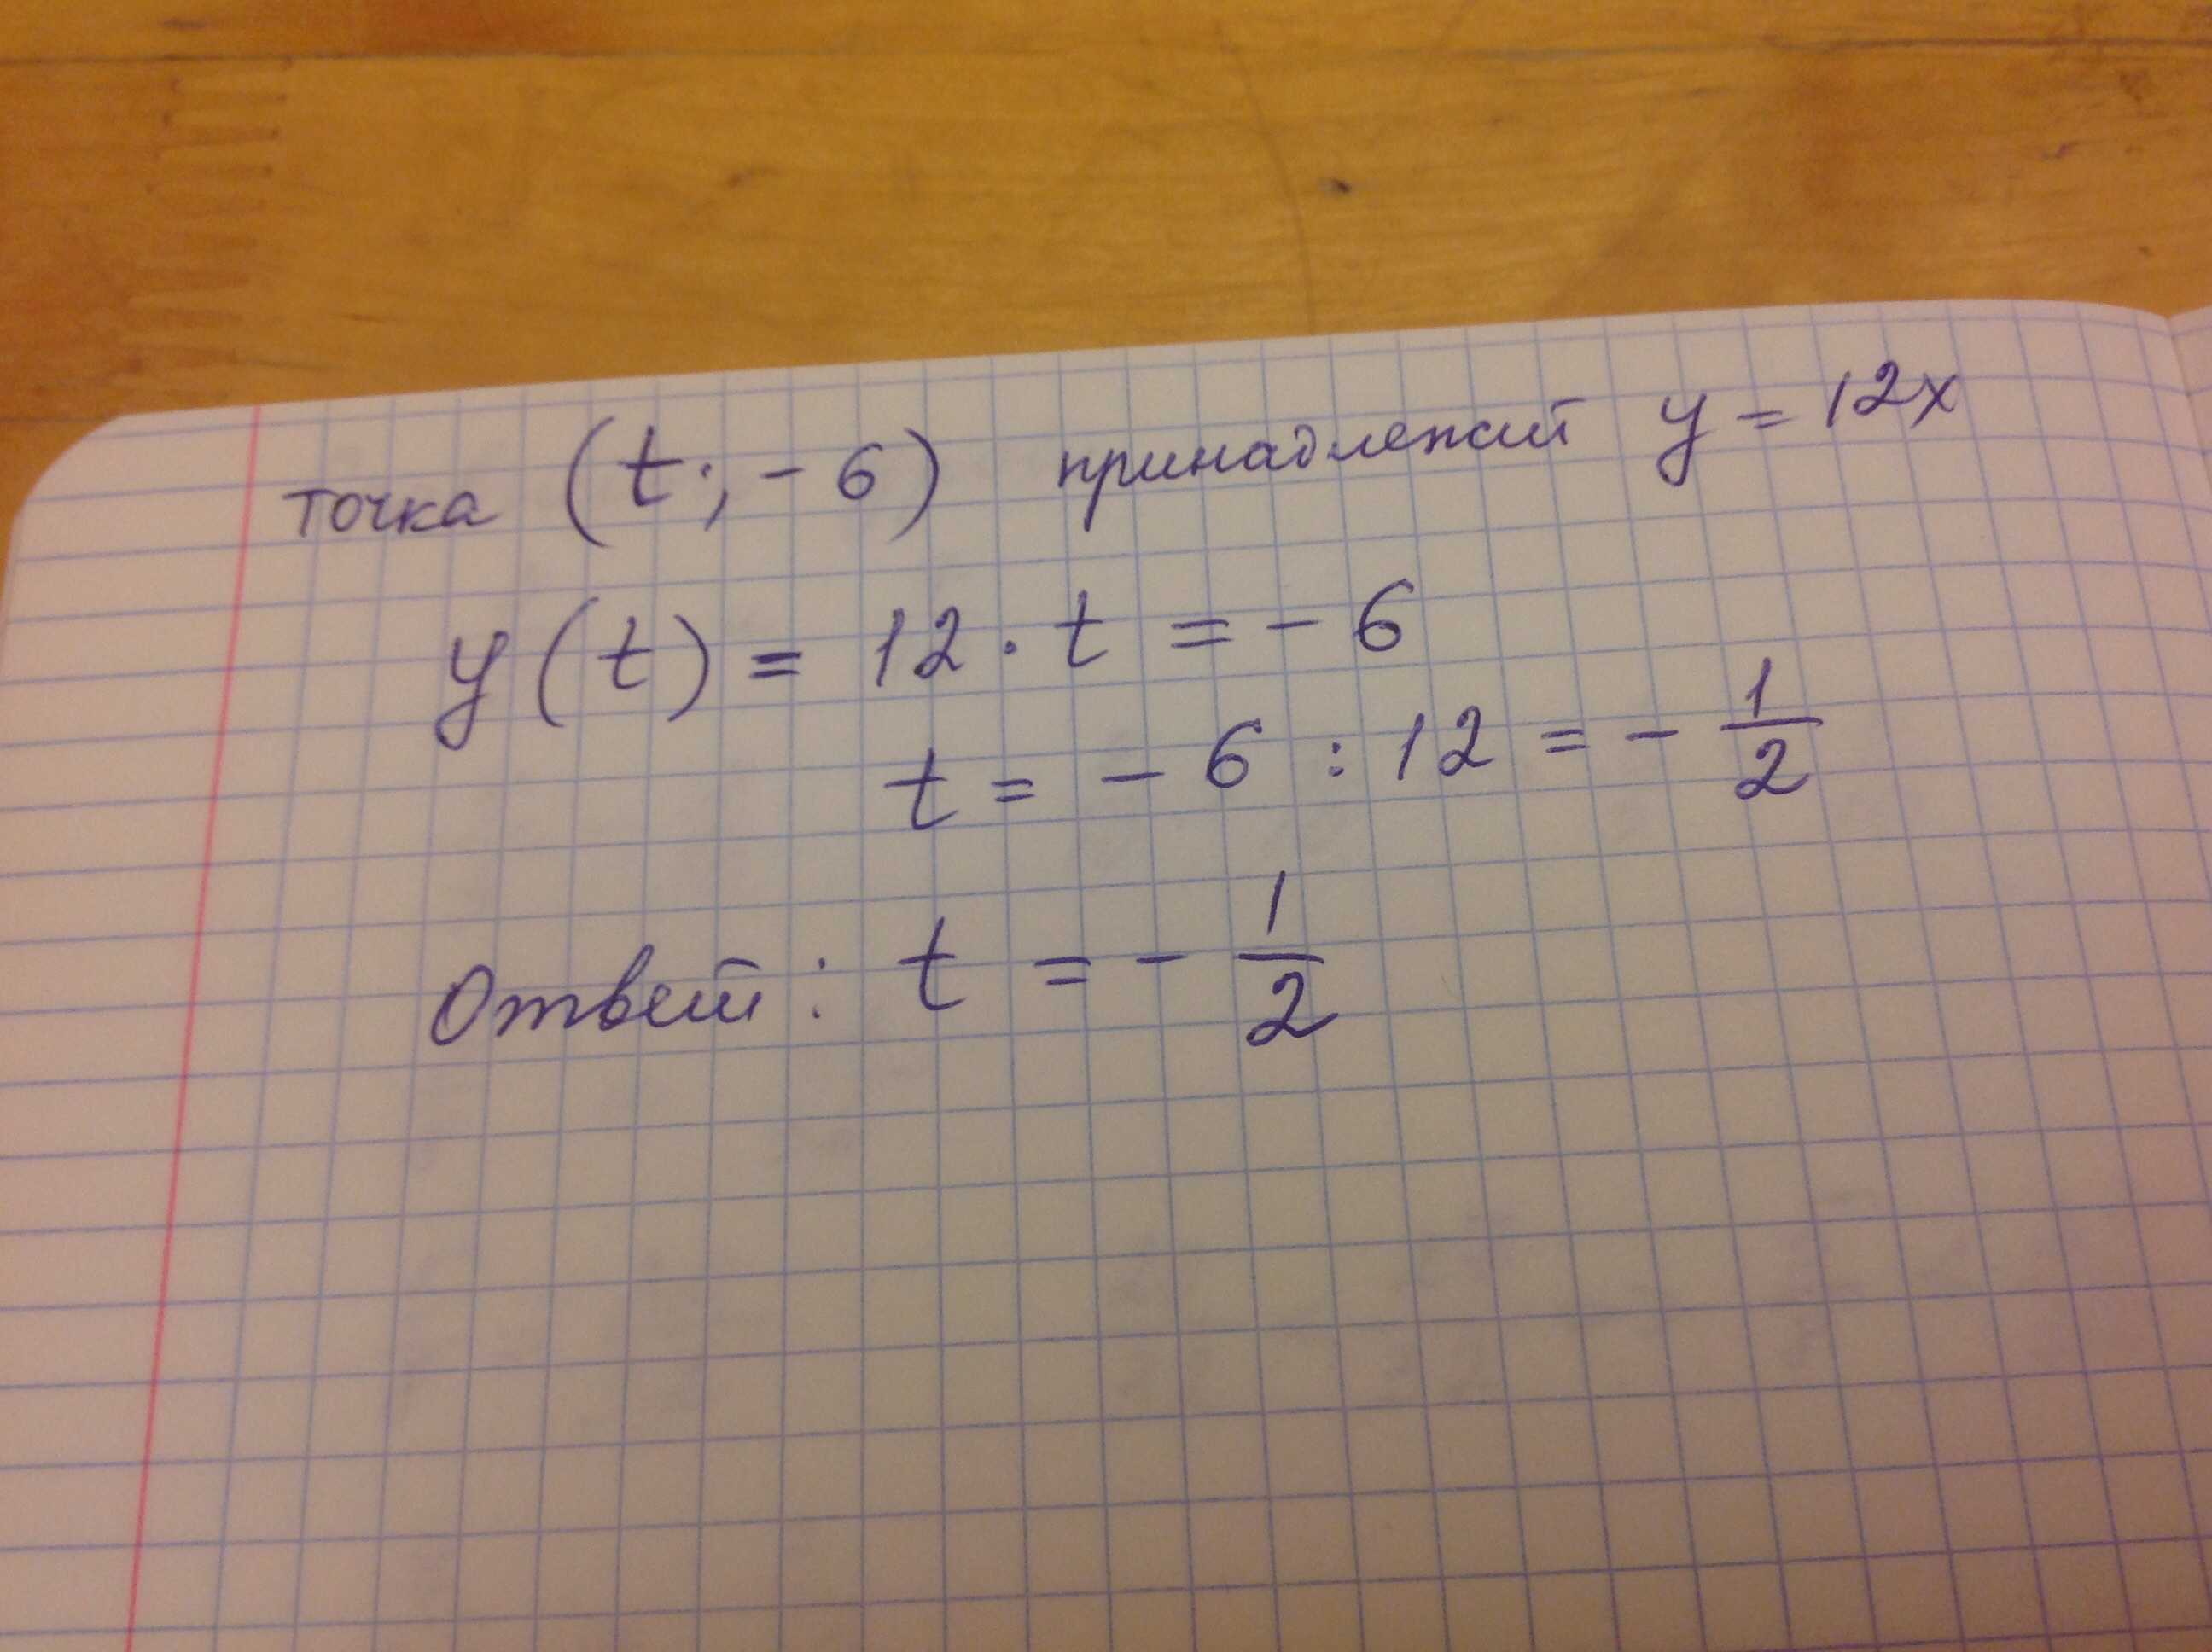 точка (t; -6) принадлежит y = 12x
y(t) = 12 · t = -6
t = -6 : 12 = - 1/2
Ответ: t = - 1/2